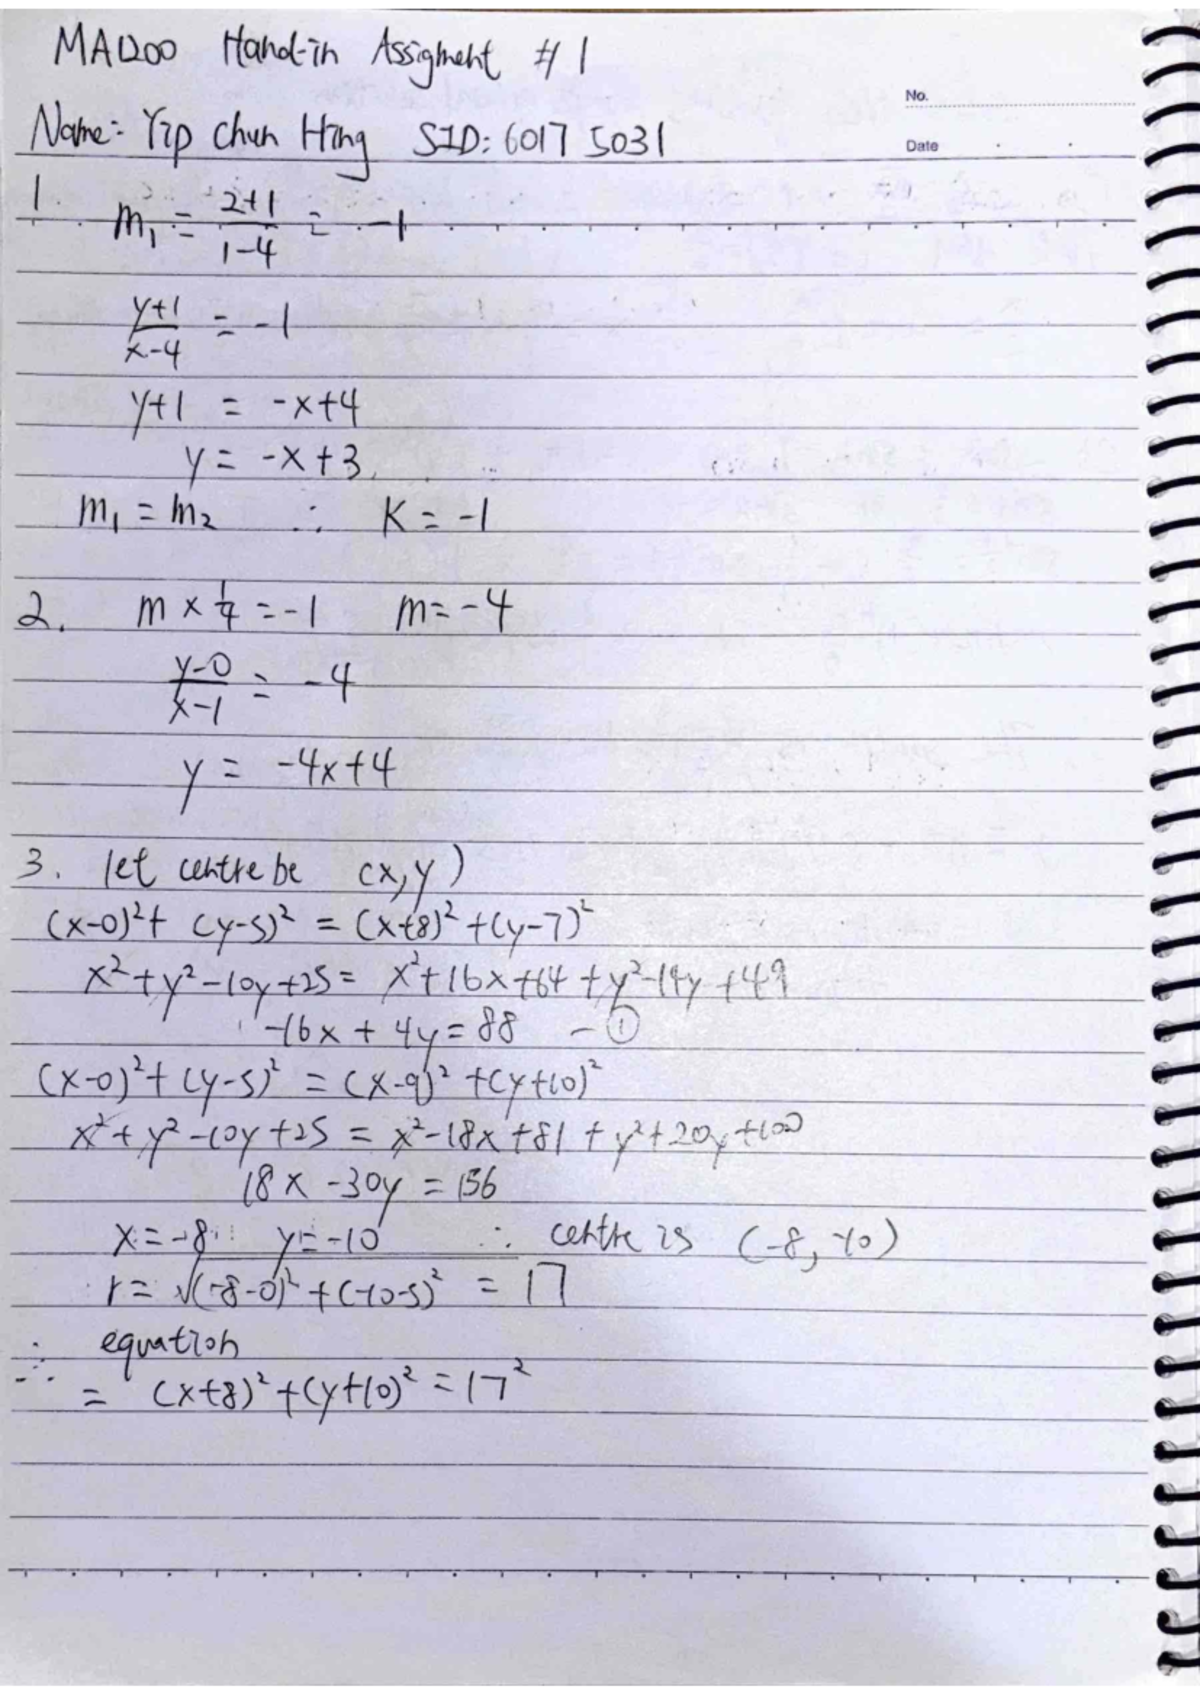 MA1200 Hand-in Assigment # 1
No.
Name: Yip Chun Hing SID: 6017 5031
Date
1 m₁ = (2+1)/(1-4) = -1
(y+1)/(x-4) = -1
y+1 = -x+4
y = -x+3
m₁ = m₂ ∴ K = -1
2. m × 1/4 = -1 m = -4
(y-0)/(x-1) = -4
y = -4x+4
3. let centre be (x, y)
(x-0)² + (y-5)² = (x+8)² + (y-7)²
x² + y² - 10y + 25 = x² + 16x + 64 + y² - 14y + 49
-16x + 4y = 88 - ①
(x-0)² + (y-5)² = (x-9)² + (y+10)²
x² + y² - 10y + 25 = x² - 18x + 81 + y² + 20y + 100
18x - 30y = 156
x = -8 y = -10 ∴ centre is (-8, -10)
r = √((-8-0)² + (-10-5)²) = 17
∴ equation
= (x+8)² + (y+10)² = 17²